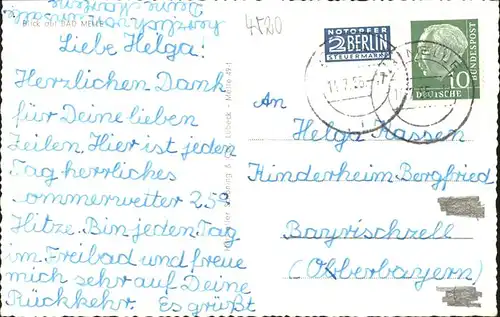 Blick auf BAD MELLE
4520
Liebe Helga!
Herzlichen Dank
für Deine lieben
Zeilen. Hier ist jeden
Tag herrliches
ommerweiter 25°
Hitze. Bin jeden Tag
im Freibad und freue
mich sehr auf Deine
Rückkehr. Es grüßt
NOTOPFER
2 BERLIN
STEUERMARKE
10
DEUTSCHE
BUNDESPOST
An
Helga Kassen
Kinderheim Bergfried
Bayrischzell
(Oberbayern)